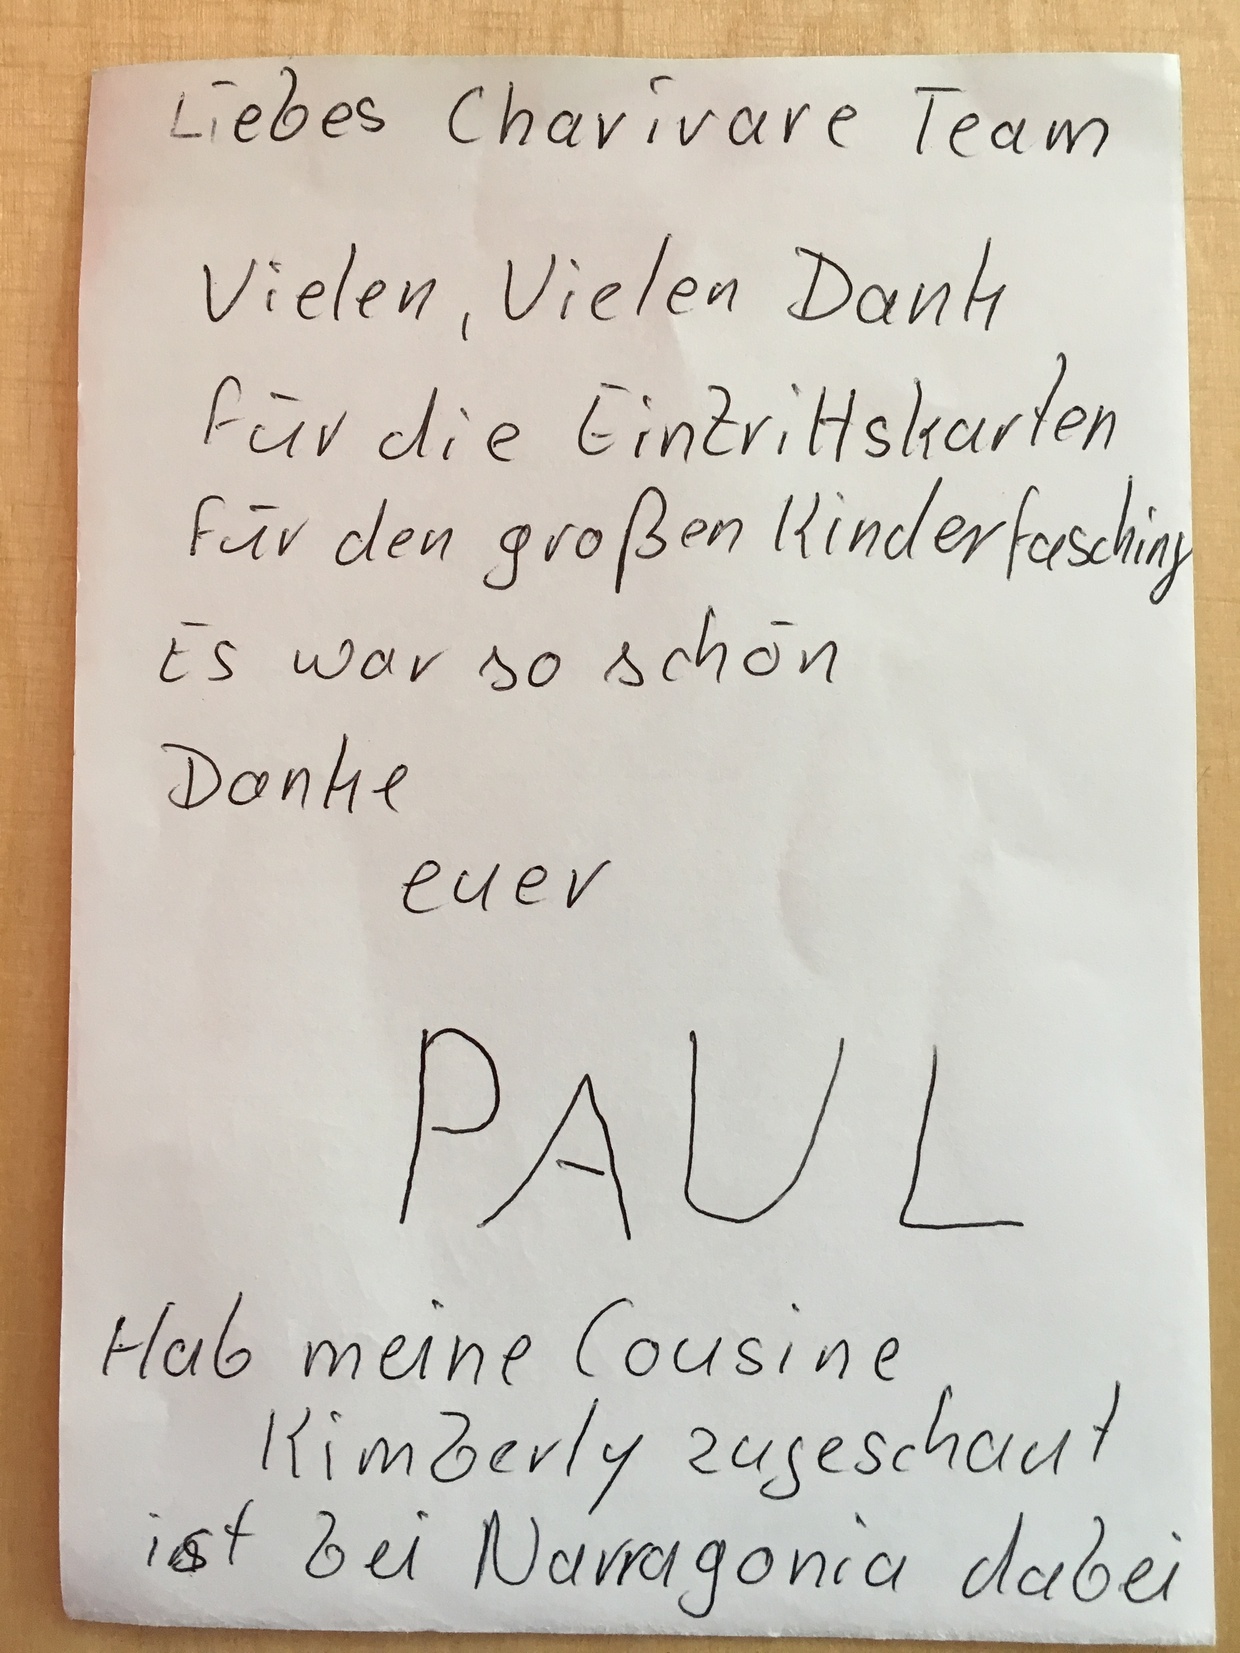 Liebes Charivare Team
Vielen, Vielen Dank
für die Eintrittskarten
für den großen Kinderfasching
Es war so schön
Danke
euer
PAUL
Hab meine Cousine
Kimberly zugeschaut
ist bei Narragonia dabei